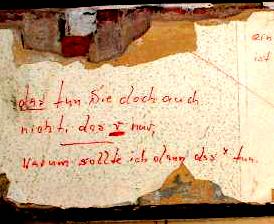 das tun Sie doch auch
nicht, das x nur,
Warum sollte ich dann das x tun.
ein
ist